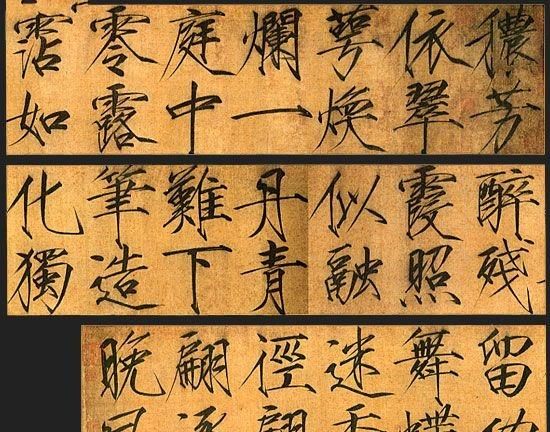 穠芳
依翠
萼煥
爛一
庭中
零露
霑如
醉残
霞照
似融
丹青
難下
筆造
化獨
留
舞蝶
迷香
徑翩
翩逐
晚